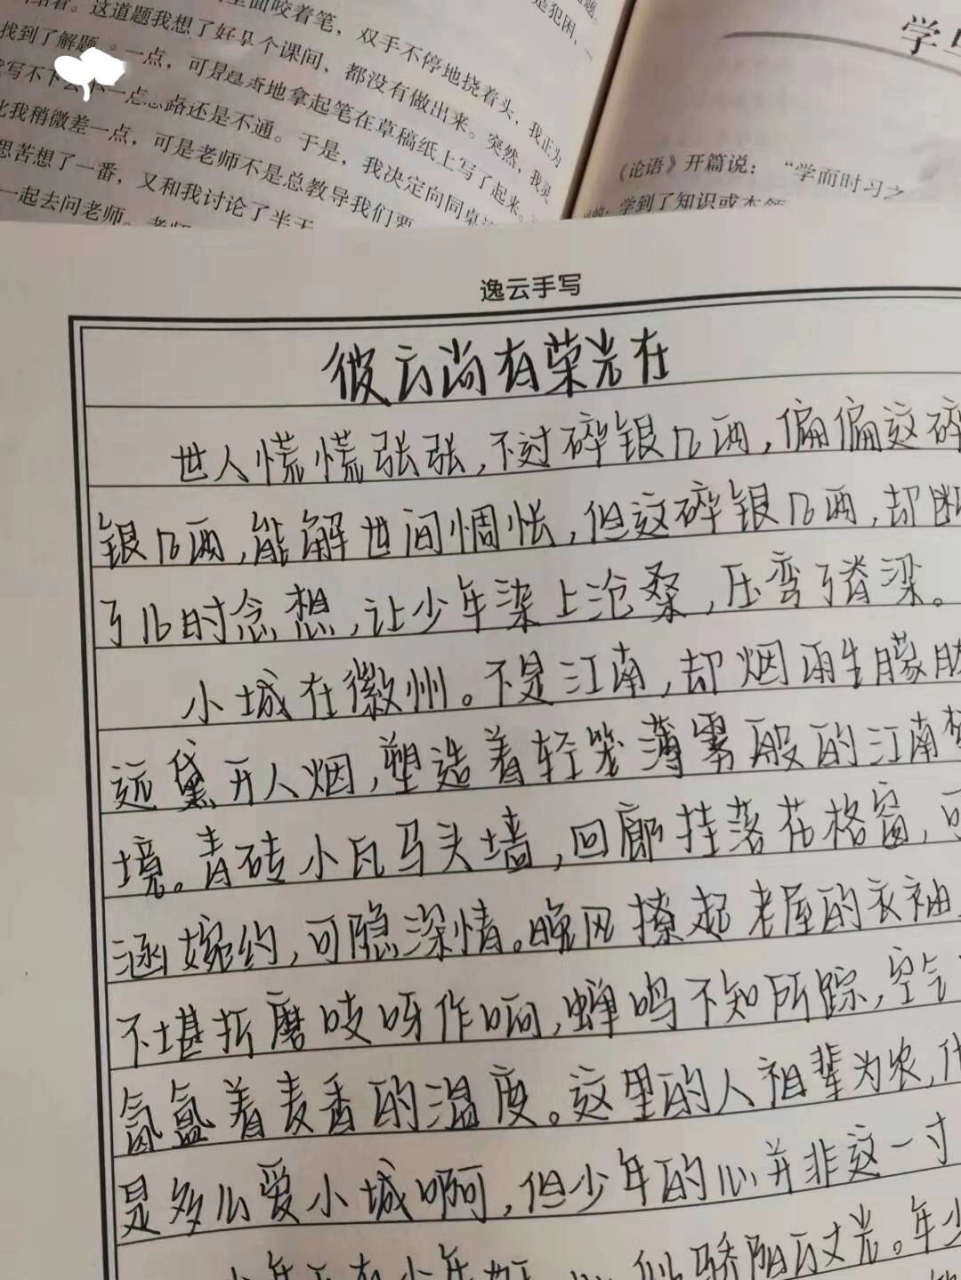 面咬着笔，双手不停地挠着头，我正为
这道题我想了好早个课间，都没有做出来。突然，我灵
找到了解题 一点，可是 地拿起笔在草稿纸上写了起来。
写不下 一点 路还是不通。于是，我决定向同桌
比我稍微差一点，可是老师不是总教导我们要
思苦想了一番，又和我讨论了半天
一起去问老师。老师
是犯困，
《论语》开篇说：“学而时习之
学到了知识或本领
逸云手写
彼云尚有荣光在
世人慌慌张张，不过碎银几两，偏偏这碎
银几两，能解世间惆怅，但这碎银几两，却断
了儿时念想，让少年染上沧桑，压弯了脊梁。
小城在徽州。不是江南，却烟雨生朦
远黛开人烟，塑造着轻笼薄雾般的江南
境。青砖小瓦马头墙，回廊挂落花格窗，可
涵婉约，可隐深情。晚风撩起老屋的衣袖，
不堪折磨吱呀作响，蝉鸣不知所踪，空气
氤氲着麦香的温度。这里的人祖辈为农，
是多么爱小城啊，但少年的心并非这一寸
骄阳万丈光。年少